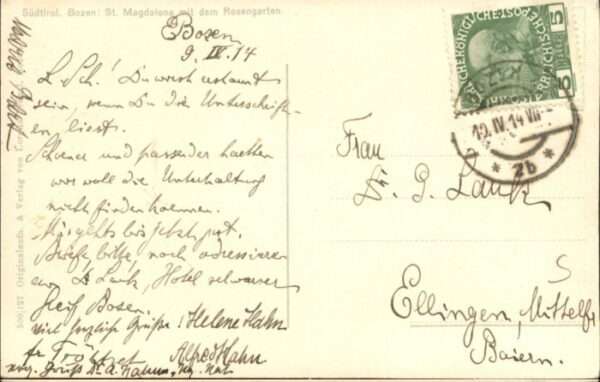 Südtirol. Bozen: St. Magdalena mit dem Rosengarten.
Bozen
9. IV. 14
L. Sch! Du wirst erstaunt
sein, wenn Du die Unterschrift-
en liest.
Schöner und passender haetten
wir wohl die Unterhaltung
nicht finden koennen.
geht's bis jetzt gut.
Briefe, bitte, nach adressieren
an Dr Lautz, Hotel schwarzer
Greif Bozen.
viel herzliche Grüsse! Helene Hahn
Alfred Hahn
Gruss Dr. A.
500/127 Originalaufn. & Verlag von
5
5
10. IV. 14 VII
* 2b *
Frau
Dr. G. Lautz
Ellingen, Mittelfr
Baiern.